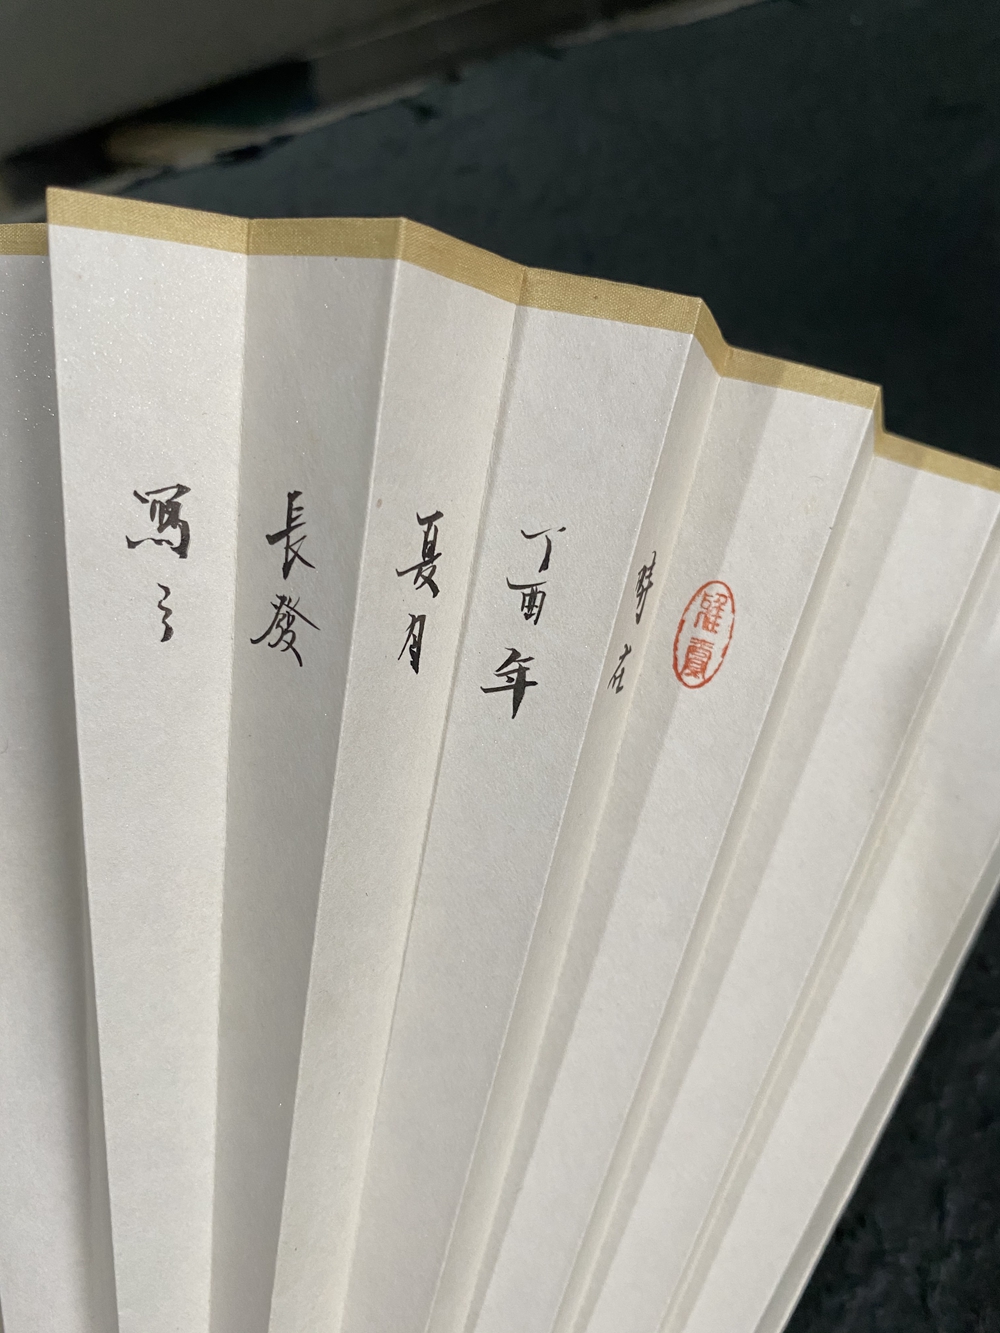 時在
丁酉年
夏月
長發
寫之